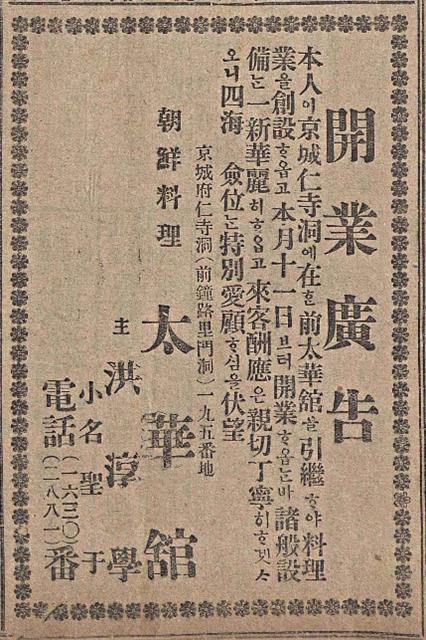 開業廣告
本人이京城仁寺洞에在ᄒᆞᆫ前太華舘을引繼ᄒᆞ야料理
業을創設ᄒᆞ옵고本月十一日브터開業ᄒᆞ옵는바諸般設
備는一新華麗히ᄒᆞ옵고來客酬應은親切丁寧히ᄒᆞ겟ᄉ
오니四海 僉位는特別愛顧ᄒᆞ심을伏望
京城府仁寺洞(前鐘路里門洞)一九五番地
朝鮮料理 太華舘
主 洪淳學
小名聖干
電話(一六三〇)(二八八一)番